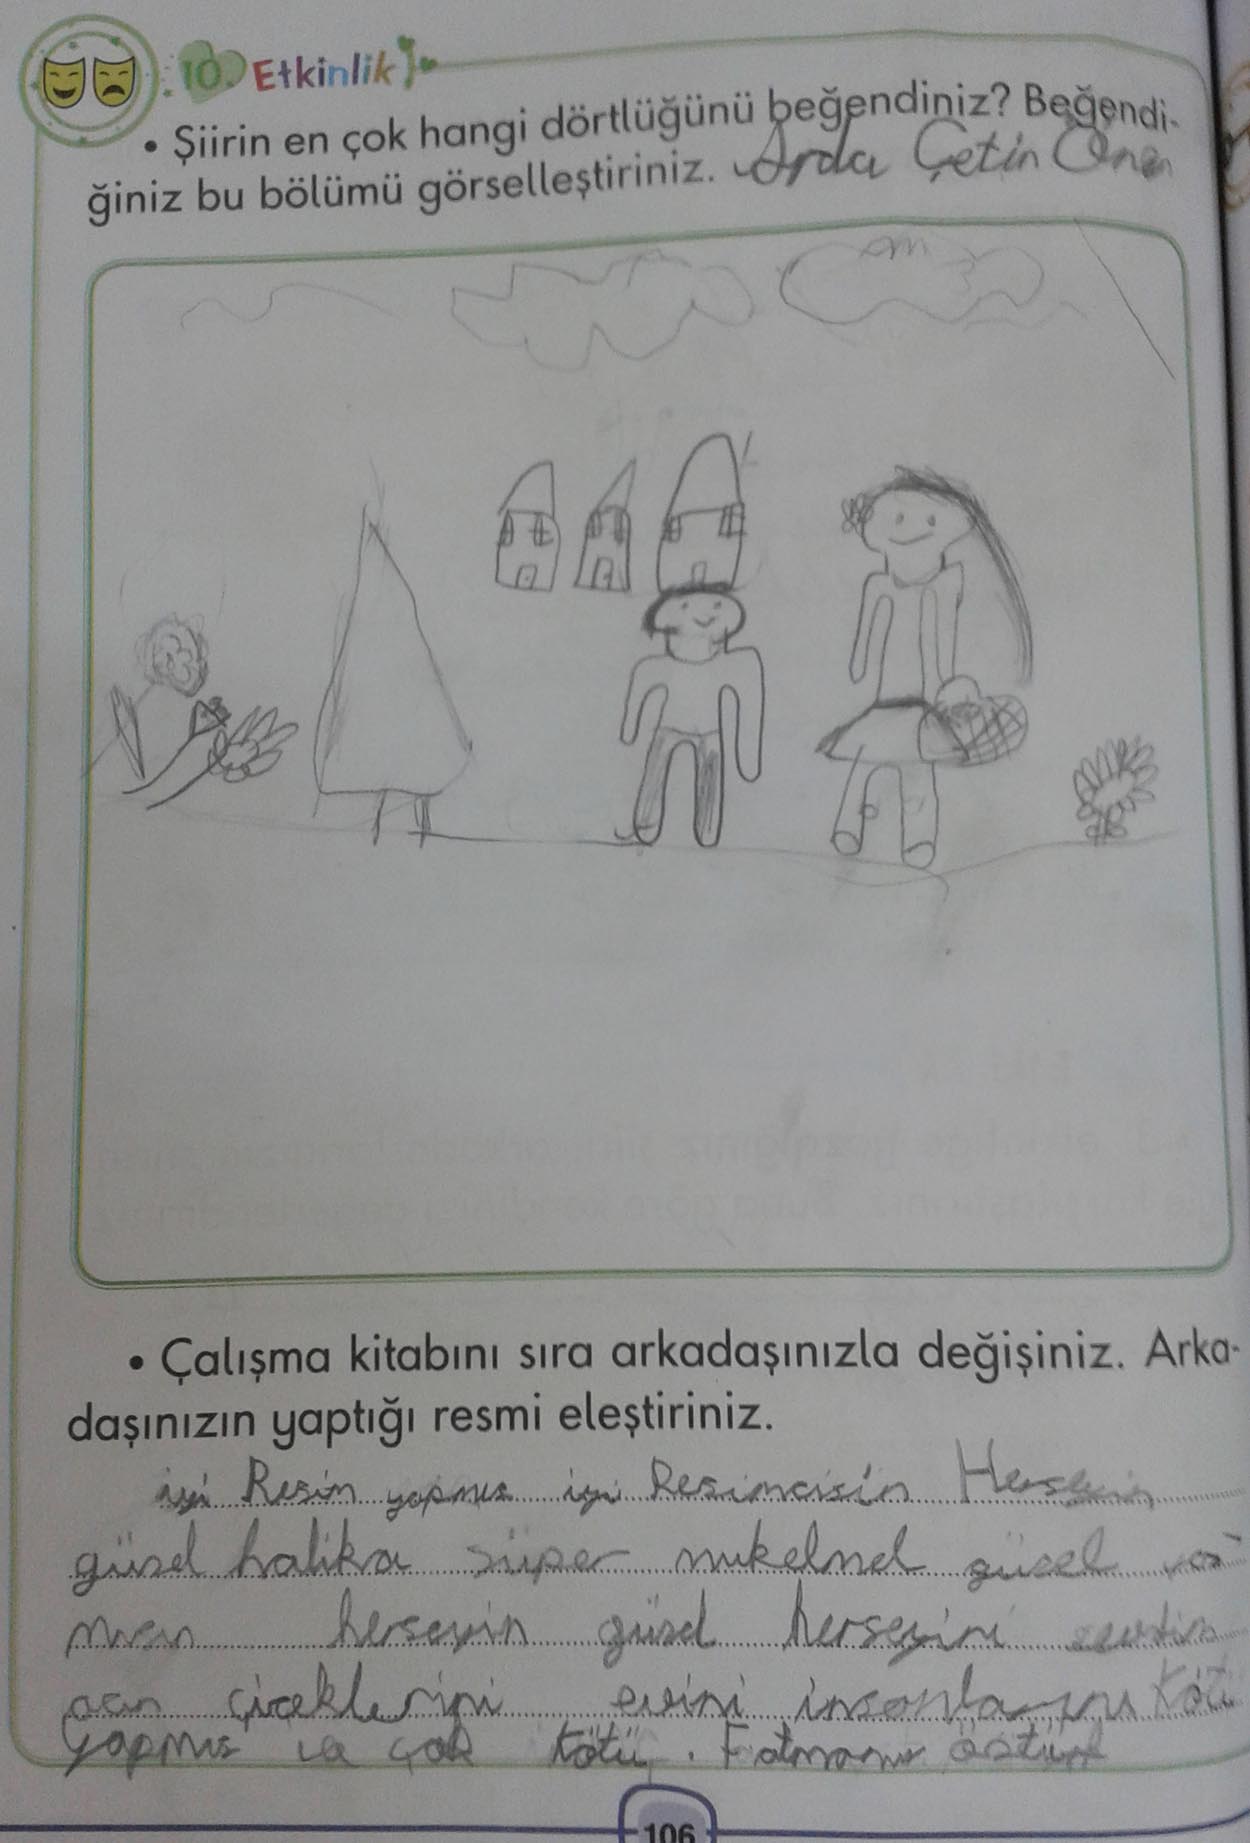 10. Etkinlik
• Şiirin en çok hangi dörtlüğünü beğendiniz? Beğendi-
ğiniz bu bölümü görselleştiriniz. Arda Çetin
• Çalışma kitabını sıra arkadaşınızla değişiniz. Arka-
daşınızın yaptığı resmi eleştiriniz.
iyi Resim yapmıs iyi Resimcisin Herseyin
güzel halika süper mukelmel güzel
herseyin güzel herseyini
çiceklerini evini insanlarını Kötü
yapmıs çok kötü.
106